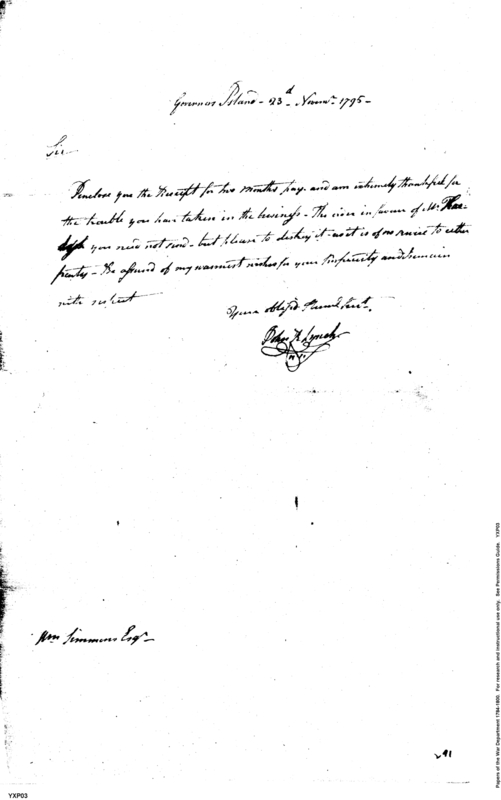 Governors Island - 23d Novemr. 1795 -
Sir
I inclose you the Receipt for two months pay. and am extremely thankful for
the trouble you have taken in the business - The in favour of Mr.
you need not send - but please to destroy it - as it is of no service to either
party - Be assured of my warmest wishes for your prosperity and remain
with respect
Your obliged Humb Servt.
Lynch
Wm Simmons Esqr -
291
YXP03
Papers of the War Department 1784-1800. For research and instructional use only. See Permissions Guide. YXP03